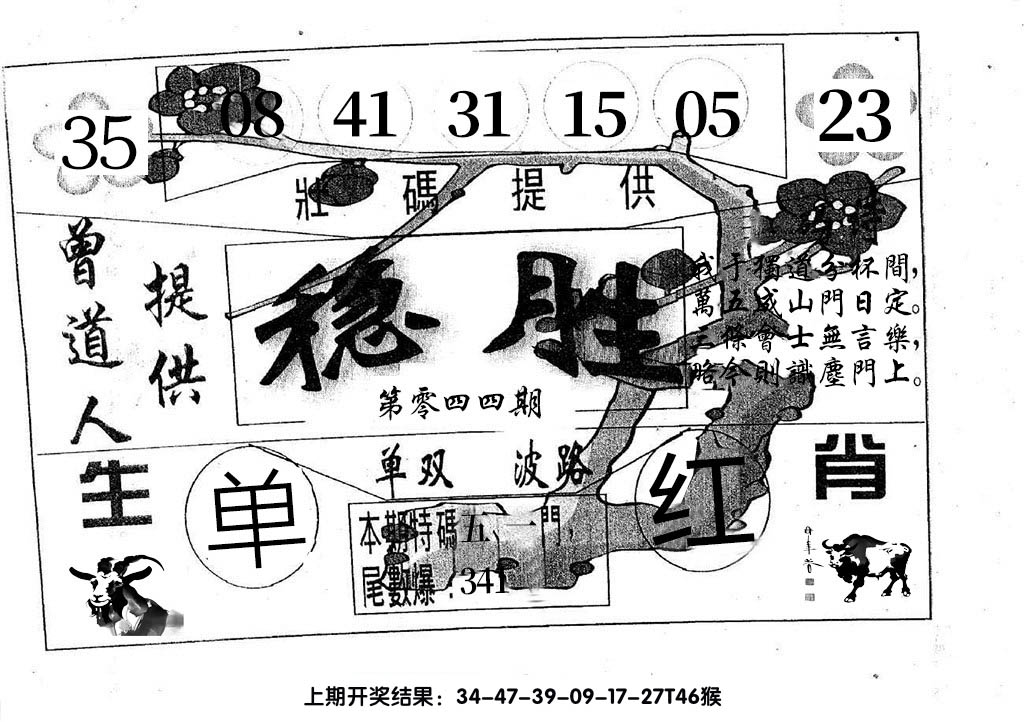 35 08 41 31 15 05 23
壯碼提供
曾道人
提供
稳胜
第零四四期
我于獨道分杯間，
萬五成山門日定。
三條會士無言樂，
略今則識塵門上。
单双 波路
生
肖
单
红
本期特碼五、一門，
尾數爆：341
上期开奖结果：34-47-39-09-17-27T46猴